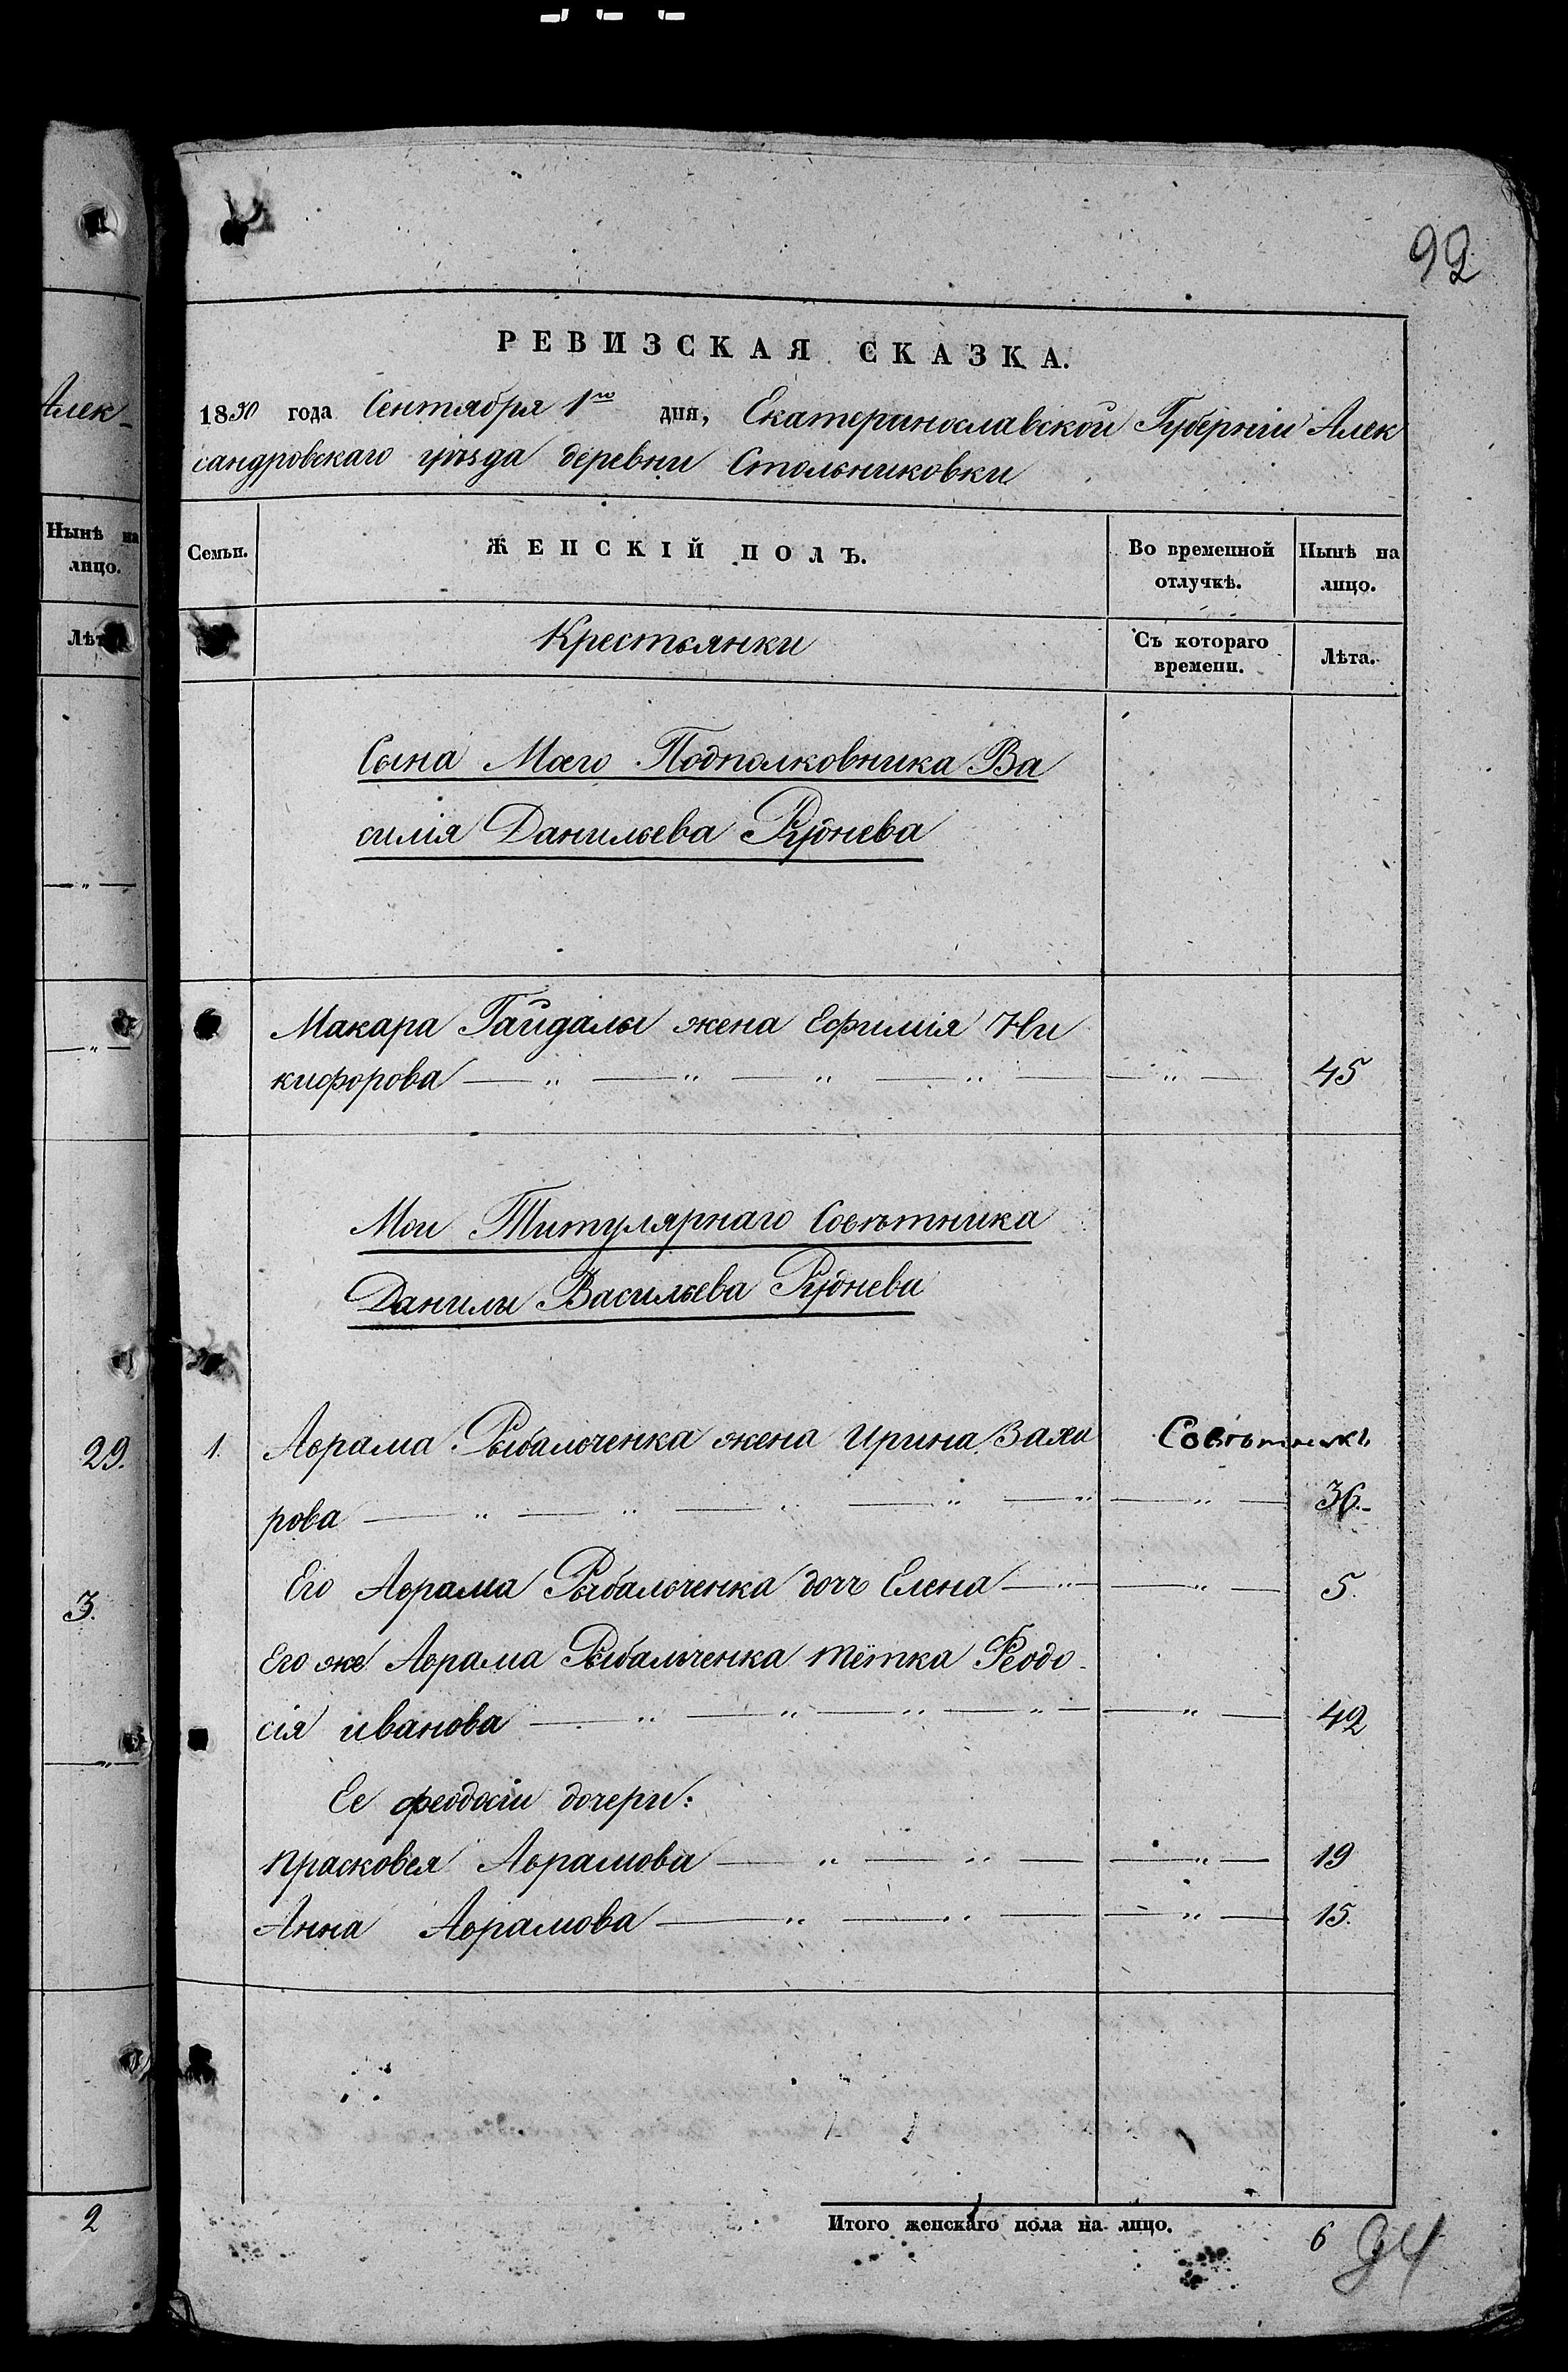 92
РЕВИЗСКАЯ СКАЗКА.
1850 года Сентября 1го дня, Екатеринославской Губерніи Алек
сандровскаго уѣзда деревни Стольниковки
Семьи.
ЖЕНСКІЙ ПОЛЪ.
Во временной отлучкѣ.
Нынѣ на лицо.
Крестьянки
Съ котораго времени.
Лѣта.
Сына Моего Подполковника Ва
силія Данильева Руднева
Макара Гайдалы жена Ефимія Ни
кифорова 45
Мои Титулярнаго Совѣтника
Данилы Васильева Руднева
1. Аврама Рыбальченка жена Ирина Заха
рова 36.
Совѣтникъ
Его Аврама Рыбальченка дочь Елена 5.
Его же Аврама Рыбальченка тётка Феодо
сія иванова 42
Ее феодосіи дочери:
Прасковья Аврамова 19
Анна Аврамова 15.
Итого женскаго пола на лицо. 6
94
Алек-
Нынѣ на
лицо.
Лѣта
29.
3.
2